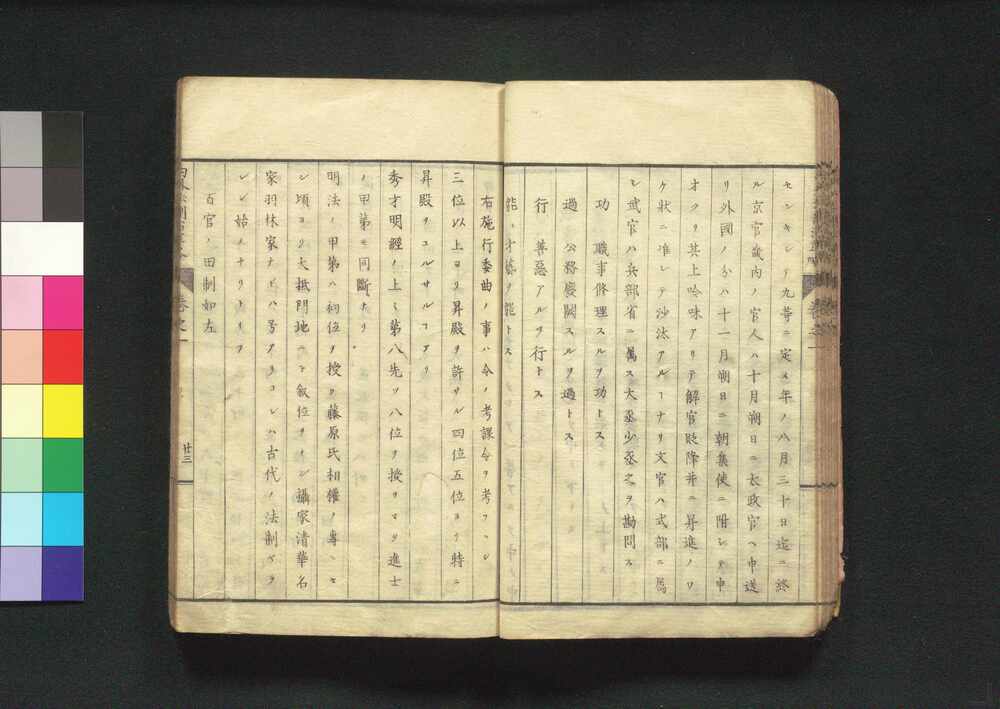 センギシテ九等ニ定メ年ノ八月三十日迄ニ終
ル京官畿内ノ官人ハ十月朔日ニ太政官ヘ申送
リ外國ノ分ハ十一月朔日ニ朝集使ニ附シテ申
オクリ其上吟味アリテ解官貶降并ニ昇進ノワ
ケ狀ニ准シテ沙汰アルヿナリ文官ハ式部ニ屬
シ武官ハ兵部省ニ屬ス大丞少丞之ヲ勘問ス
功 職事修理スルヲ功トス
過 公務廢闕スルヲ過トス
行 善惡アルヲ行トス
能 才藝ヲ能トス
右施行委曲ノ事ハ令ノ考課令ヲ考フヘシ
三位以上ヨリ昇殿ヲ許サル四位五位ヨリ特ニ
昇殿ヲユルサルヿアリ
秀才明經ノ上々第八先ツ八位ヲ授ケマタ進士
ノ甲第モ同斷ナリ
明法ノ甲第ハ初位ヲ授ク藤原氏相權ノ專ニセ
シ頃ヨリ大抵門地ニテ叙位サタシ攝家清華名
家羽林家ナドハ号アリコレハ古代ノ法制ベラ
シジ始メナリトリフ
百官ノ田制如左
卷之一
廿三